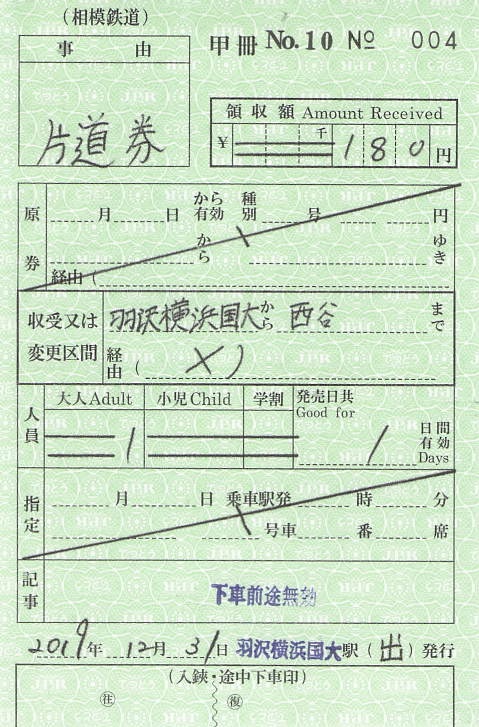 (相模鉄道)
事由
片道券
甲冊 No.10 № 004
領収額 Amount Received
千
¥ 180 円
原券
月 日 から有効 種別 号 円
から ゆき
経由 (
収受又は変更区間
羽沢横浜国大から 西谷 まで
経由 ( )
人員
大人Adult 小児Child 学割 発売日共 Good for
1 1 日間有効 Days
指定
月 日 乗車駅発 時 分
号車 番 席
記事
下車前途無効
2019年 12月 31日 羽沢横浜国大駅 (出) 発行
(入鋏・途中下車印)
往 復